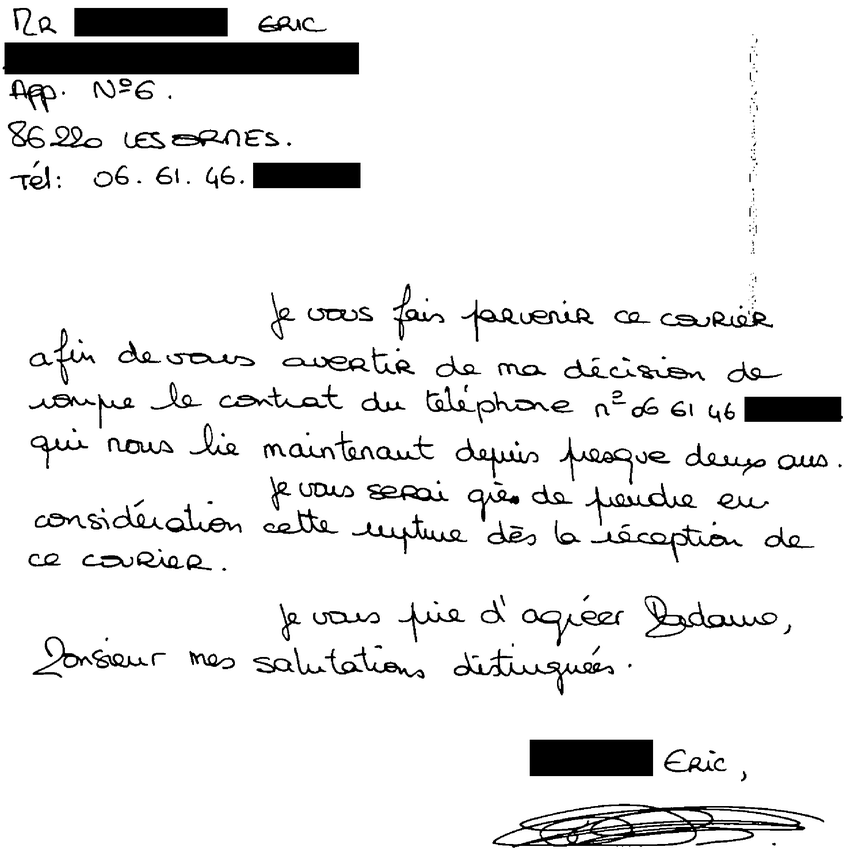 MR ERIC
App. Nº6.
86220 LES ORMES.
Tél: 06. 61. 46.
Je vous fais parvenir ce courier
afin de vous avertir de ma décision de
rompre le contrat du téléphone nº 06 61 46
qui nous lie maintenant depuis presque deux ans.
Je vous serai grès de prendre en
considération cette rupture dès la réception de
ce courier.
Je vous prie d'agréer Madame,
Monsieur mes salutations distinguées.
ERIC,